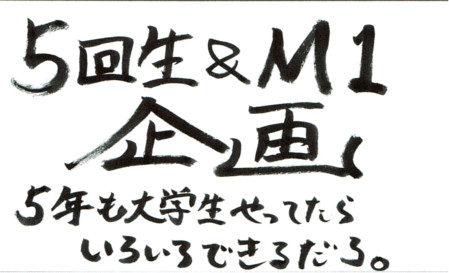 5回生&M1
企画
5年も大学生やってたら
いろいろできるだろ。